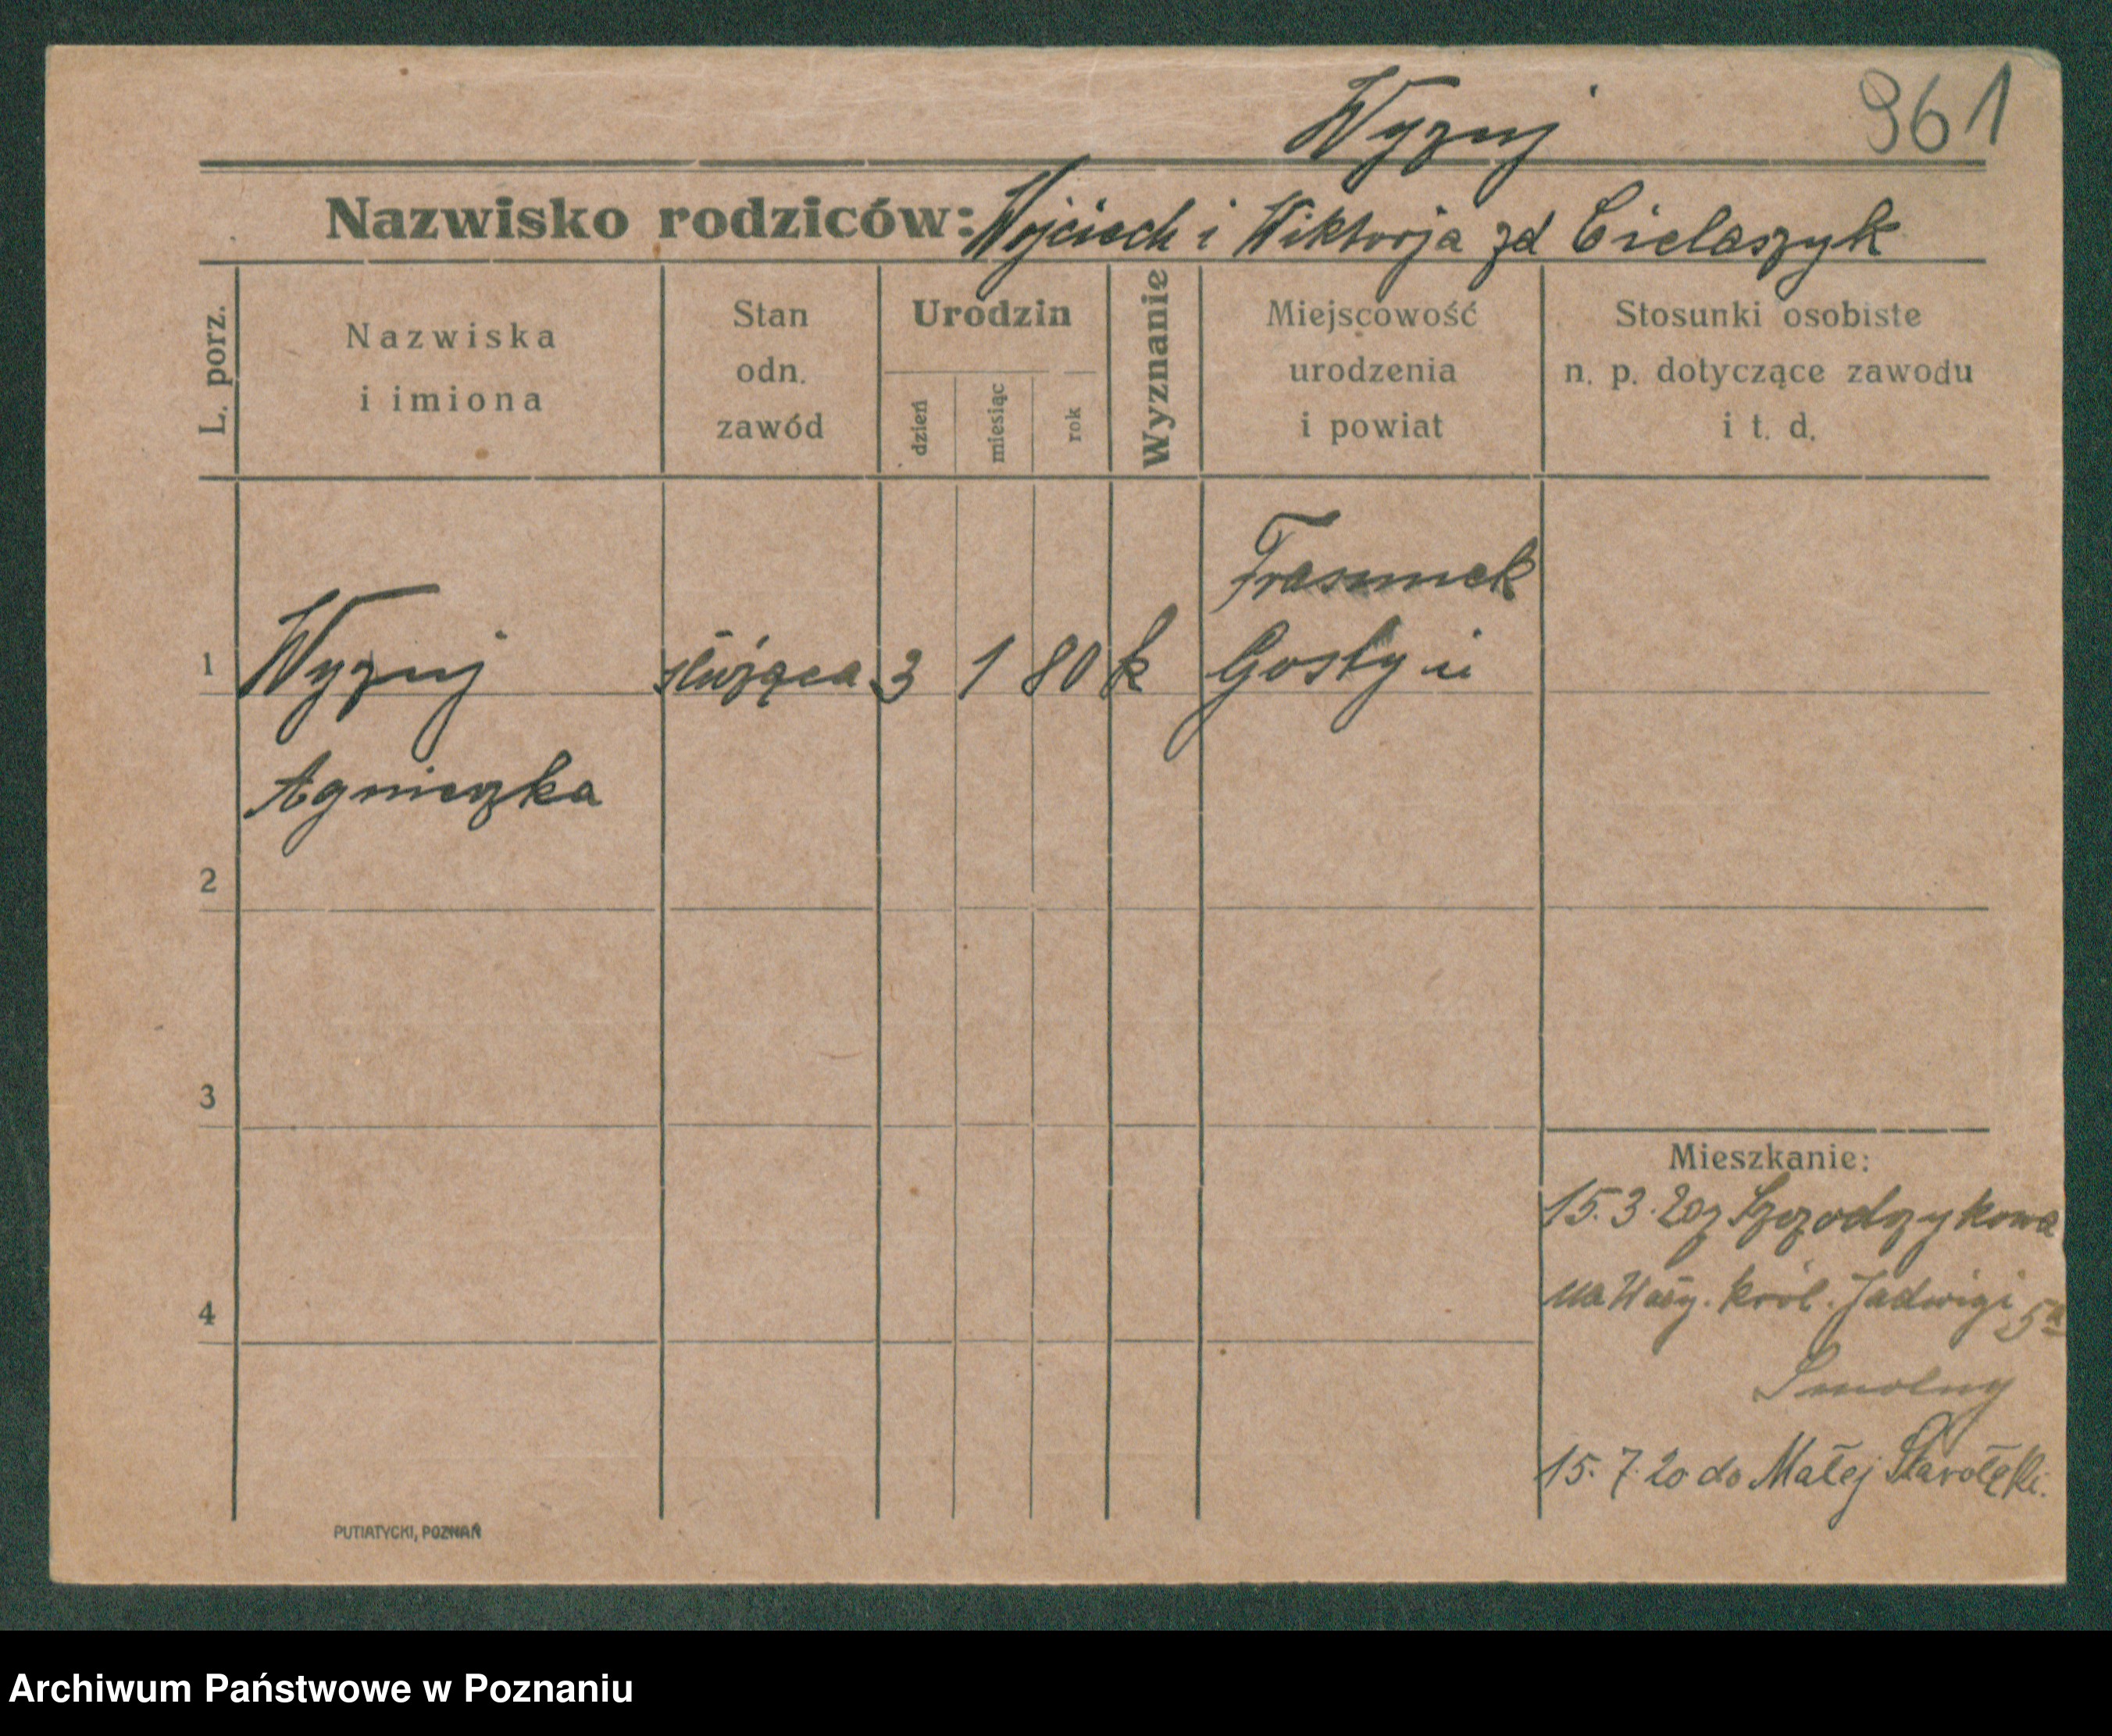 Wyzuj
961
Nazwisko rodziców: Wojciech i Wiktorja zd Cielaszyk
L. porz.
Nazwiska
i imiona
Stan
odn.
zawód
Urodzin
dzień
miesiąc
rok
Wyznanie
Miejscowość
urodzenia
i powiat
Stosunki osobiste
n. p. dotyczące zawodu
i t. d.
Frasunek
1 Wyzuj służąca 3 1 80 k Gostyń
Agnieszka
2
3
4
Mieszkanie:
15.3.20
król. Jadwigi 5a
Smolny
15.7.20 do Małej Starołęki.
PUTIATYCKI, POZNAŃ
Archiwum Państwowe w Poznaniu